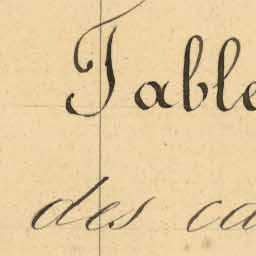 Table
des ca